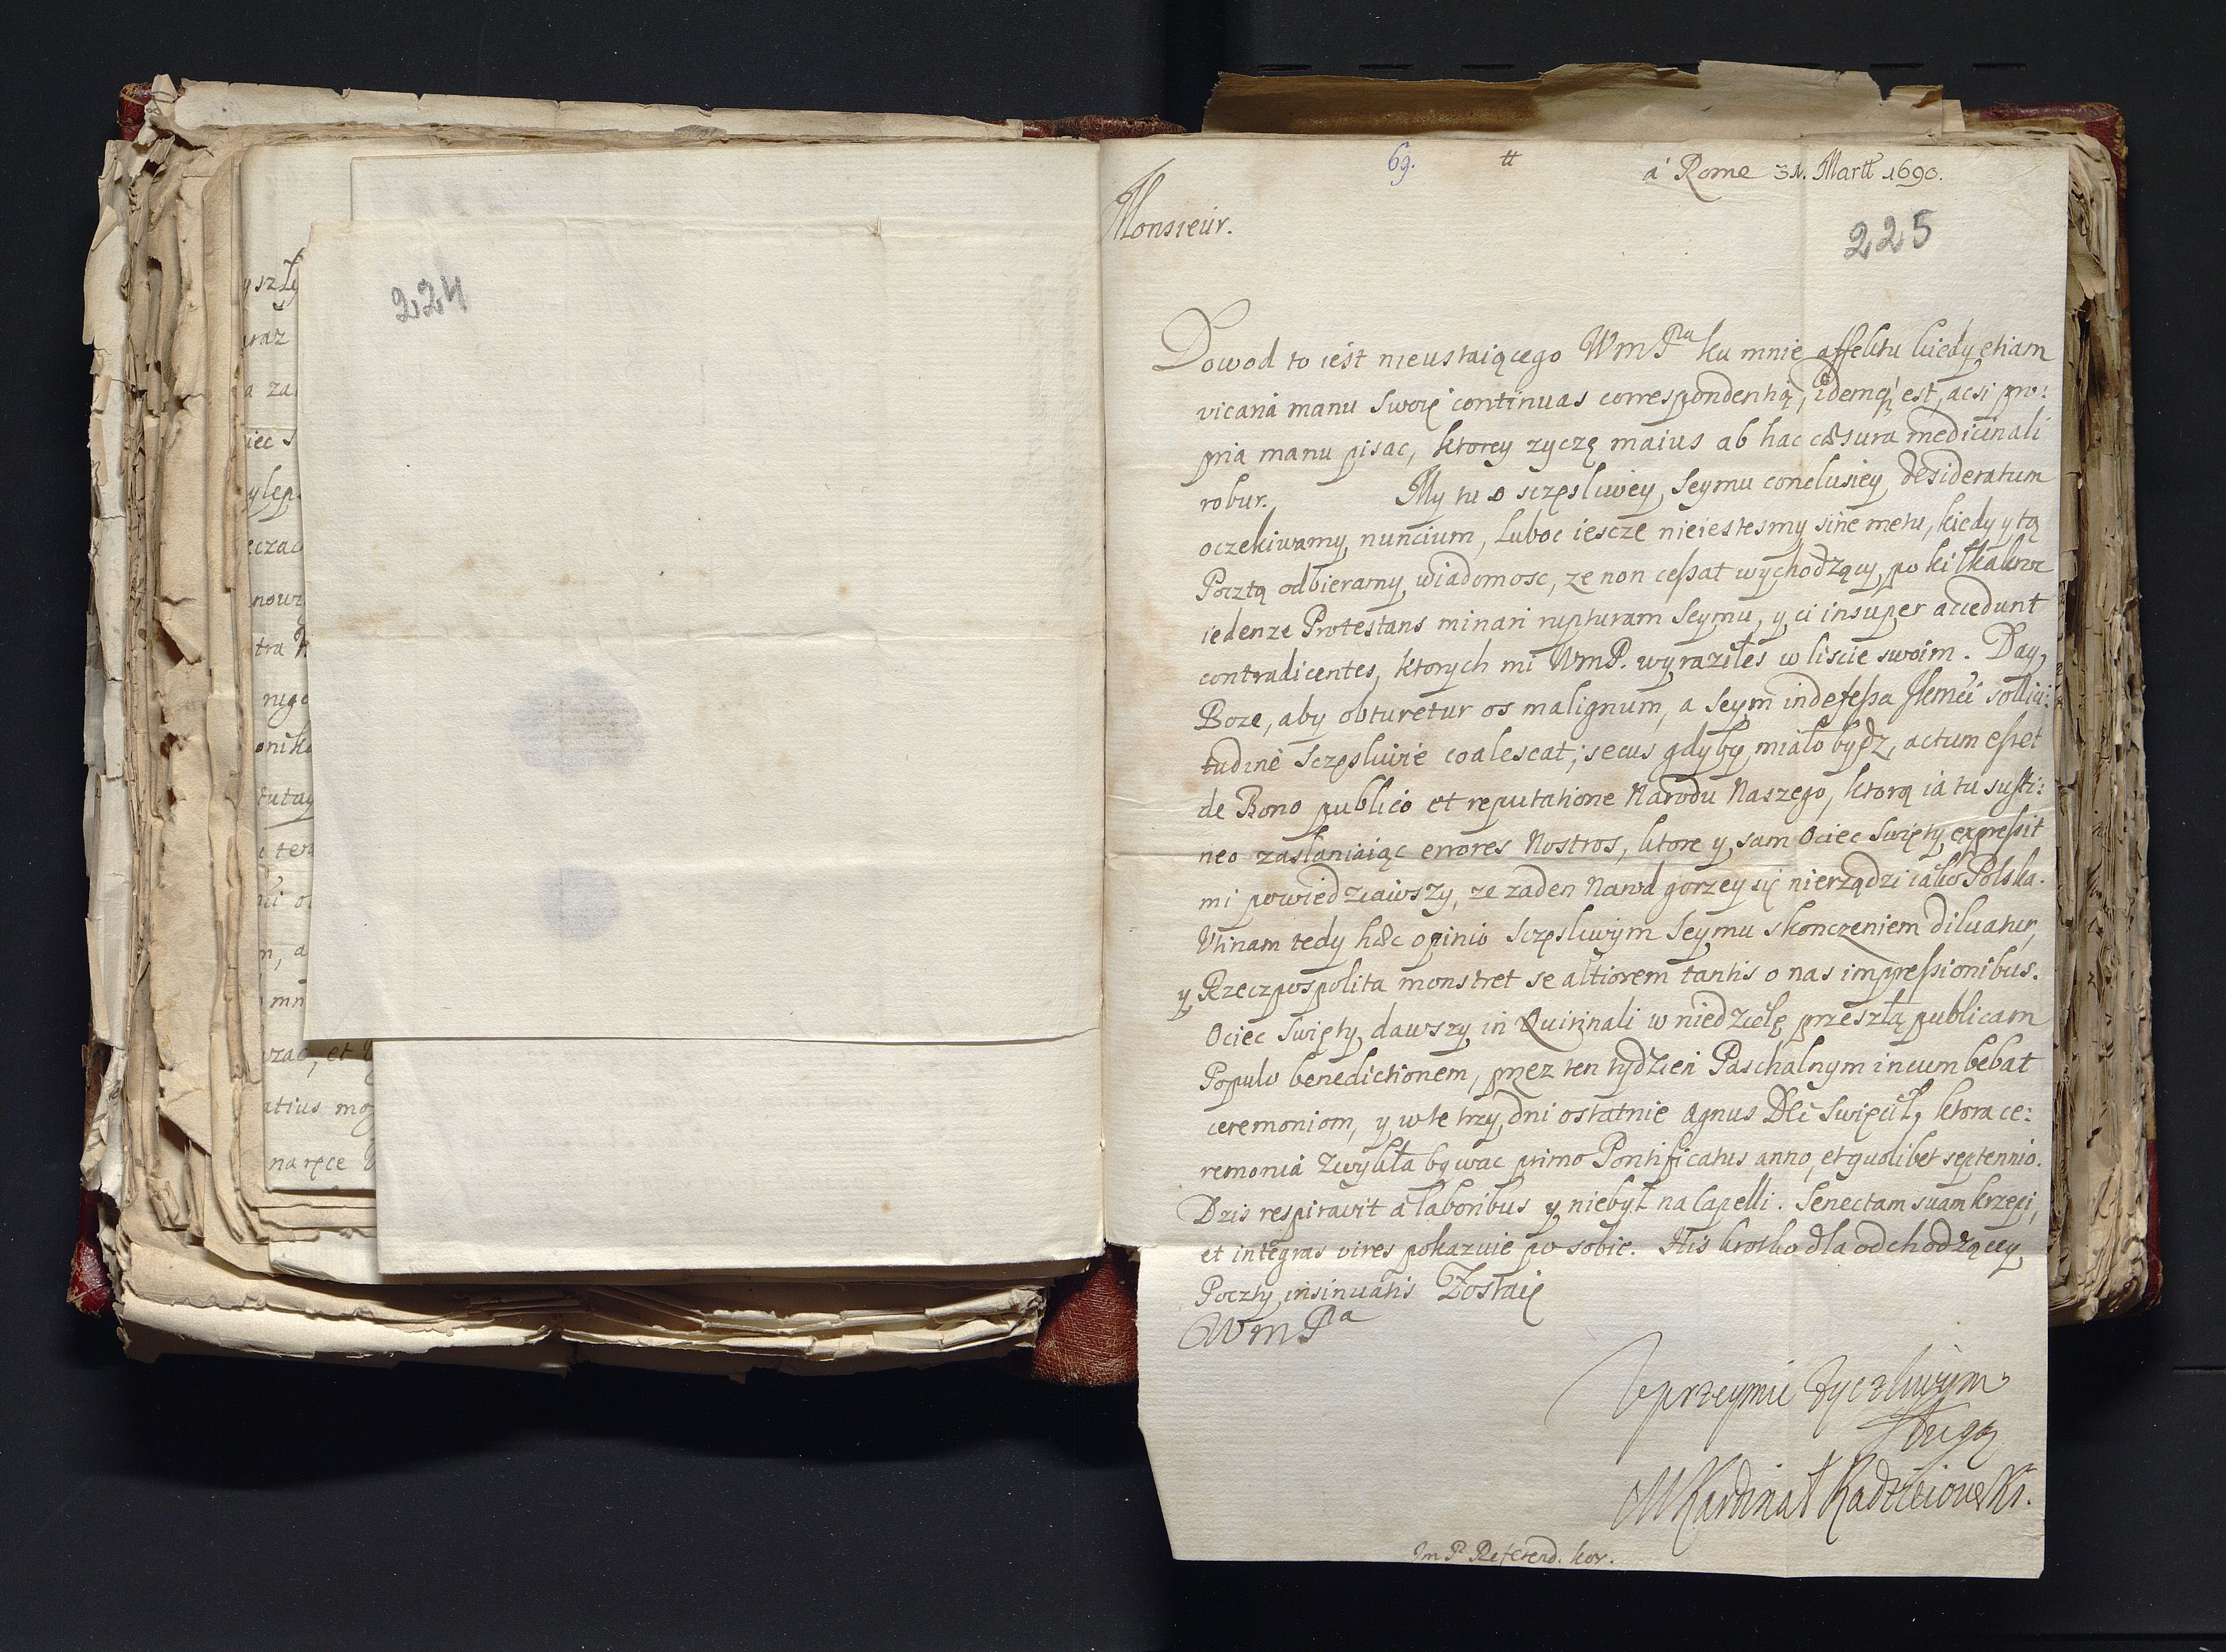 224
ysz
raz
a za
iec s
ylep
eczac
nowi
tra
nige
onik
tutay
i ter
m, a
mn
wzac, et
atius mo
na ręce
69. tt
á Rome 31. Martt 1690.
Monsieur.
225
Dowod to iést nieustaiącego WmPna ku mnie affektu kiedy etiam
vicaná manu Swoię continuas correspondentią, idemq́ est, acsi pro:
pria manu pisac, ktorey zyczę maius ab hac cæsura medicinali
robur. My tu o sczęsliwey Seymu conclusiey desideratum
oczekiwamy nuncium, Luboc iescze nieiestesmy sine metu, kiedy y tą
Pocztą odbieramy wiadomosc, ze non ceßat wychodzący po kilkakroc
ieden ze Protestans minari rupturam Seymu, y ci insuper accedunt
contradicentes, ktorych mi WmP. wyraziłes w liscie swoim. Day,
Boze, aby obturetur os malignum, a Seym indefeßa flemei sollici:
tudine sczęsliwie coalescat; secus gdyby miało bydz, actum eßet
de Bono publico et reputatione Narodu Naszego, ktorą ia tu susti:
neo zasłaniaiąc errores Nostros, ktore y sam Ociec Swięty expreßit
mi powiedziawszy, ze zaden Narod gorzey się nierządzi iako Polska.
Utinam tedy hæc opinio Sczęsliwym Seymu skonczeniem diluatur,
y Rzeczpospolita monstret se altiorem tantis o nas impreßionibus.
Ociec Swięty dawszy in Quirinali w niedzielę przeszłą publicam
Populo benedictionem, przez ten tydzien Paschalnym incumbebat
ceremoniom, y w te trzy dni ostatnie Agnus Dei Swięcił, ktora ce:
remonia zwykła bywac primo Pontificatus anno, et quolibet septennio.
Dzis respiravit á laboribus y niebył na Capelli. Senectam suam krzepi,
et integras vires pokazuie po sobie. His krotko dla odchodzącey
Poczty insinuatis Zostaię
WmPna
Uprzeymie zyczliwym
sługą
M Kardinał Radzieiowski.
Jm P. Referend. kor.